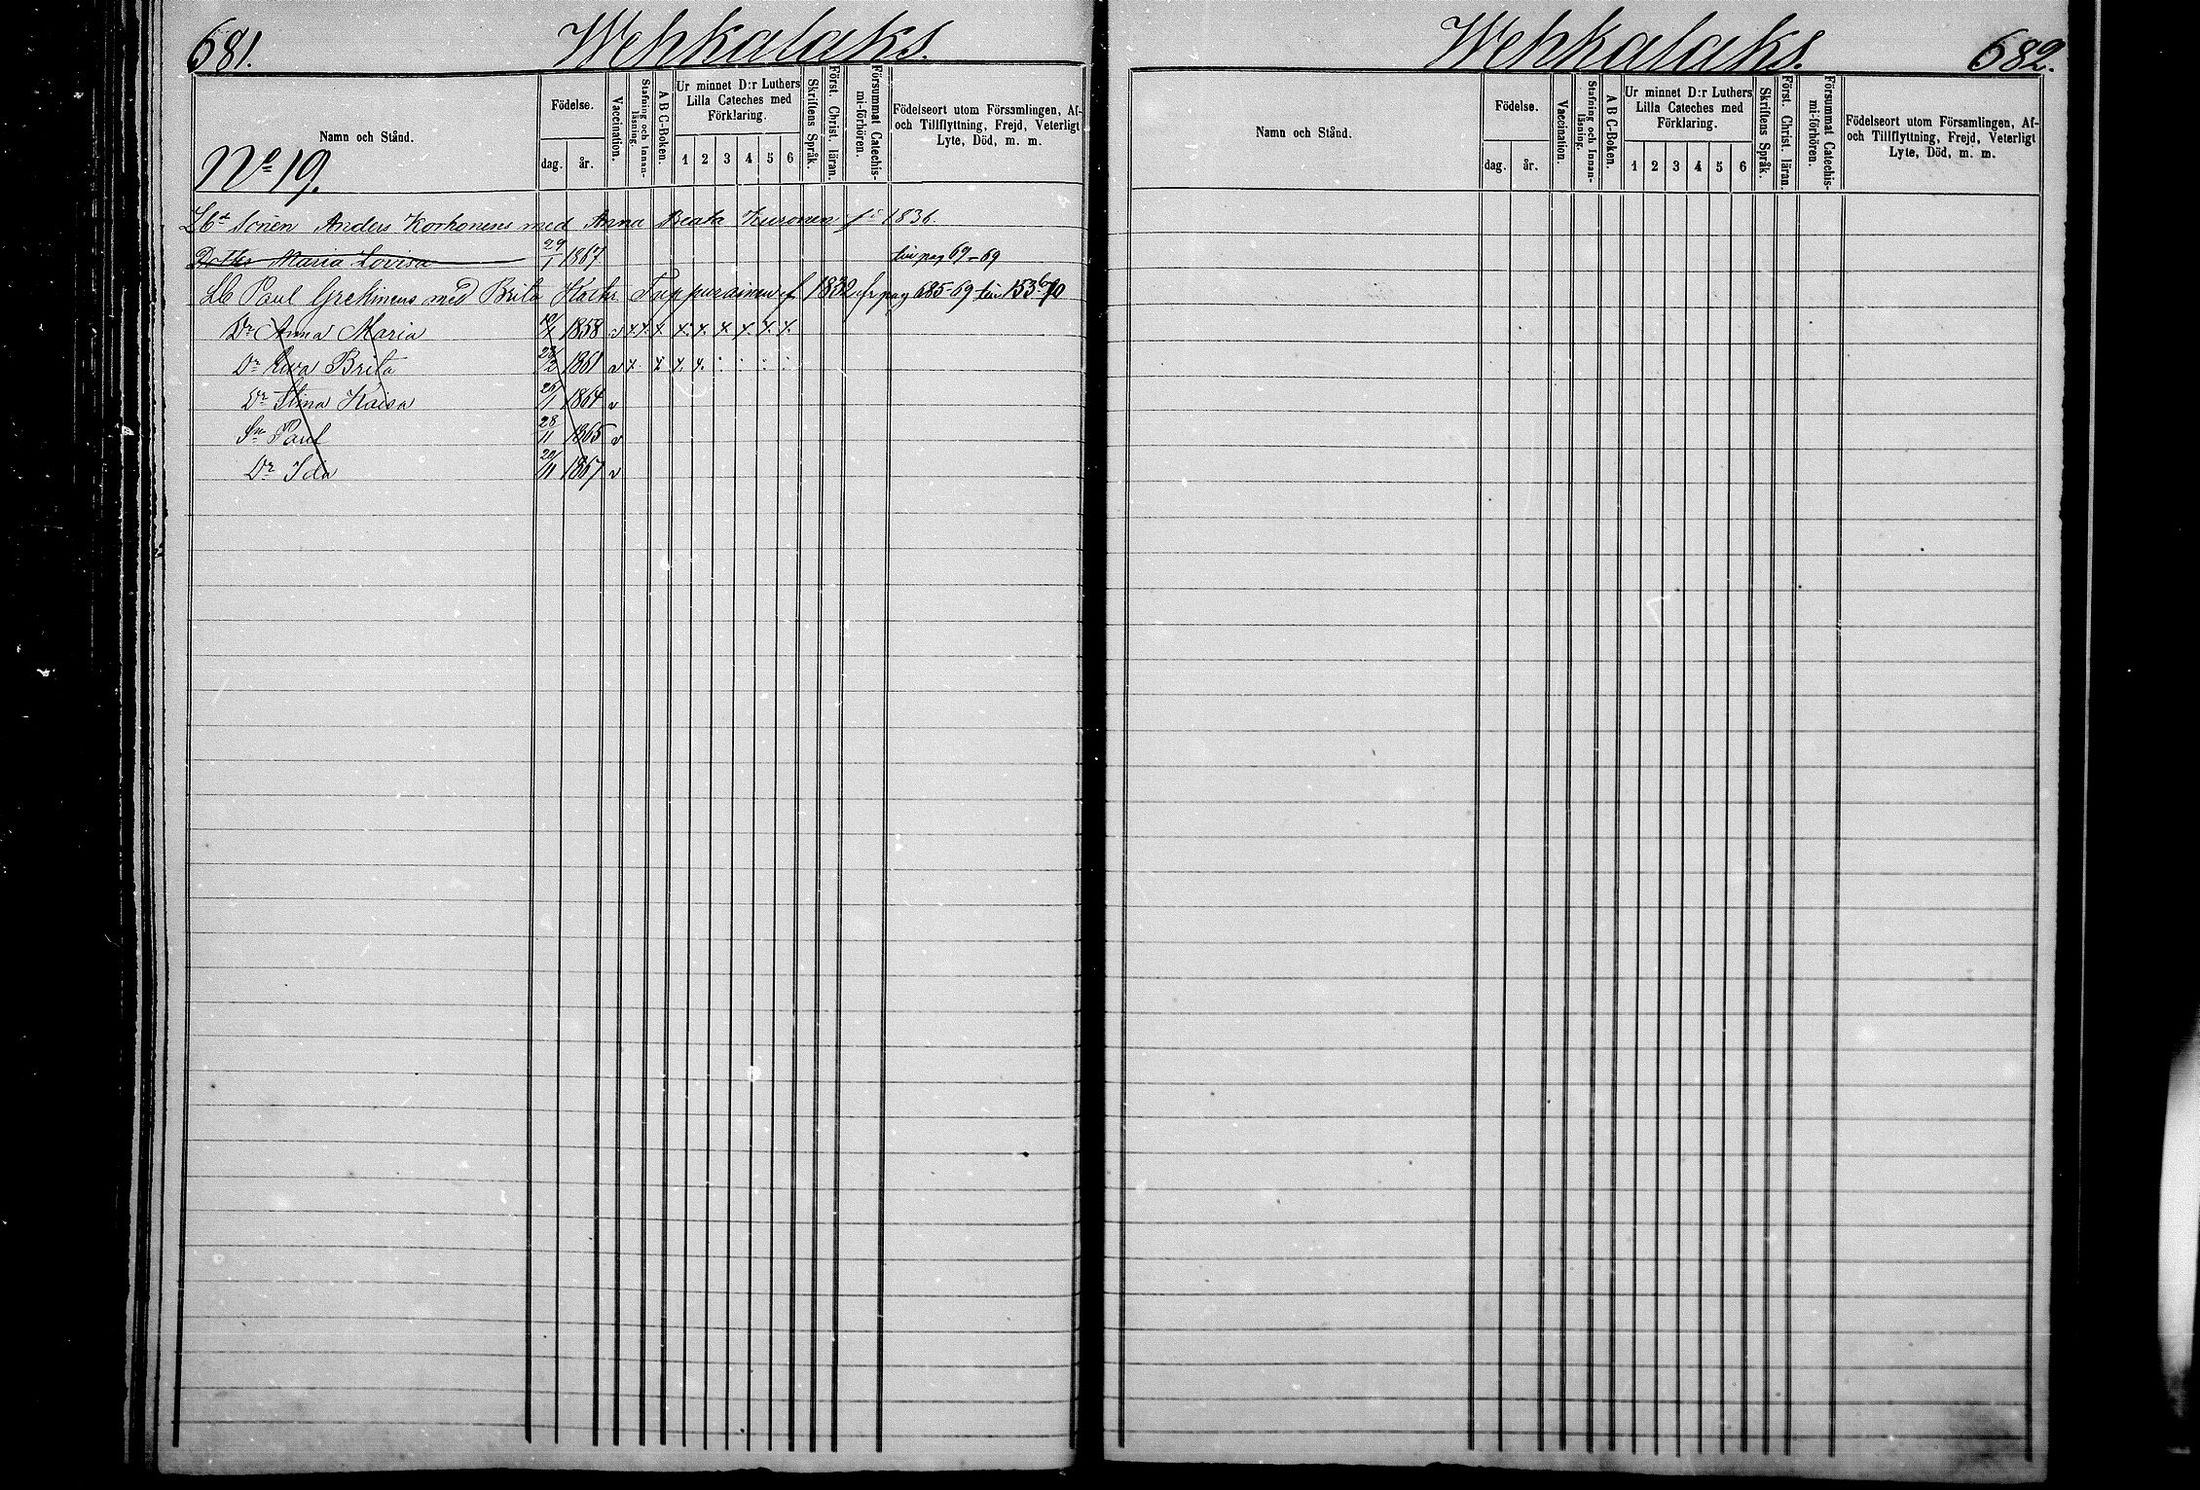 681. Wehkalaks.
Namn och Stånd. Födelse. dag. år. Vaccination. Stafning och Innanläsning. A B C-Boken. Ur minnet D:r Luthers Lilla Cateches med Förklaring. 1 2 3 4 5 6 Skriftens Språk. Först. Christ. läran. Försummat Catechismi-förhören. Födelseort utom Församlingen, Af- och Tillflyttning, Frejd, Veterligt Lyte, Död, m. m.
No 19.
Anders Korhonens med Anna Beata Kuronen 1836.
Maria Lovisa 29/1 1867 pag 69-69
Lb Paul Grekinens med Brita Tuppurainen 1832 pag 685-69 153 70
Dr Anna Maria 1858 v x x x x x x x x x
Dr Ewa Brita 28/2 1861 v x x x x
Dr Stina Kaisa 1864 v
Sn Paul 28/11 1865 v
Dr Ida 1867 v
Wehkalaks. 682.
Namn och Stånd. Födelse. dag. år. Vaccination. Stafning och Innanläsning. A B C-Boken. Ur minnet D:r Luthers Lilla Cateches med Förklaring. 1 2 3 4 5 6 Skriftens Språk. Först. Christ. läran. Försummat Catechismi-förhören. Födelseort utom Församlingen, Af- och Tillflyttning, Frejd, Veterligt Lyte, Död, m. m.